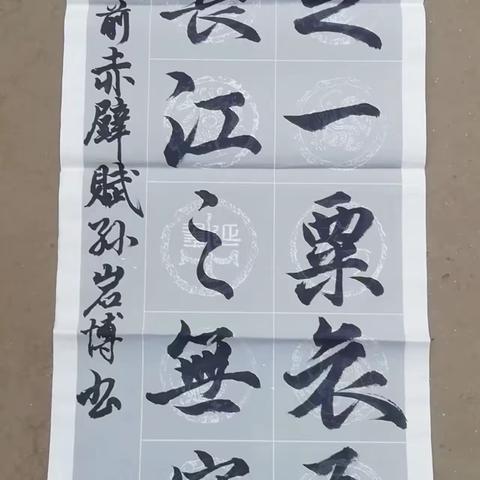 之一粟哀
長江之無
前赤壁賦孙岩博书